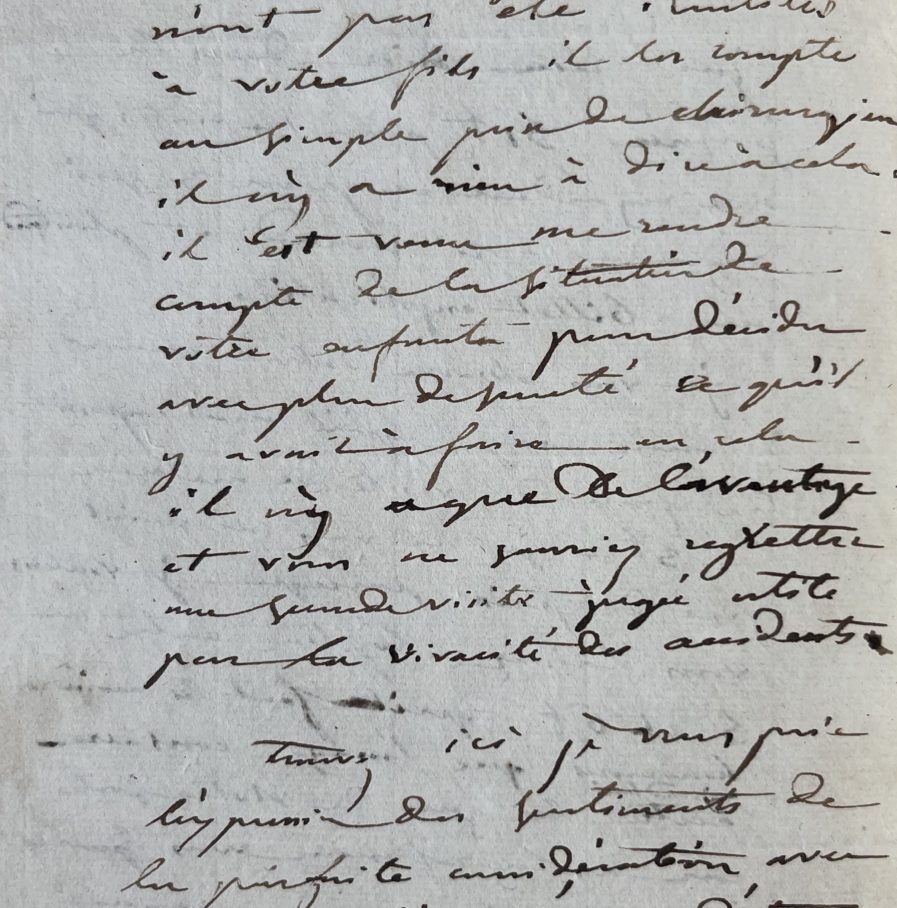 n'ont pas été
à votre fils il les compte
au simple prix de chirurgien
il n'y a rien à dire à cela.
il s'est venu me rendre
compte de la situation de
votre enfant pour décider
avec plus de sureté ce qu'il
y avait à faire en cela
il n'y a que de l'avantage
et vous ne sauriez regretter
une seconde visite jugée utile
par la vivacité des accidents.
trouvez ici je vous prie
l'expression des sentiments de
la parfaite considération avec